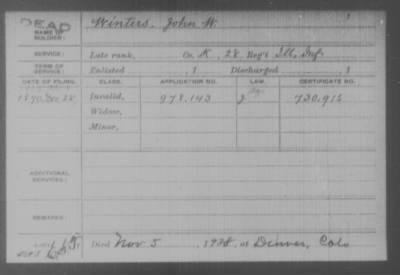 DEAD
NAME OF SOLDIER: Winters, John W.
SERVICE: Late rank, Co. K, 28 Reg't Ill. Inf.
TERM OF SERVICE: Enlisted , 1 Discharged , 1
DATE OF FILING. CLASS. APPLICATION NO. LAW. CERTIFICATE NO.
1890 Invalid, 978.143 730.915
Widow,
Minor,
ADDITIONAL SERVICES:
REMARKS:
Died Nov 5, 1928, at Denver, Colo